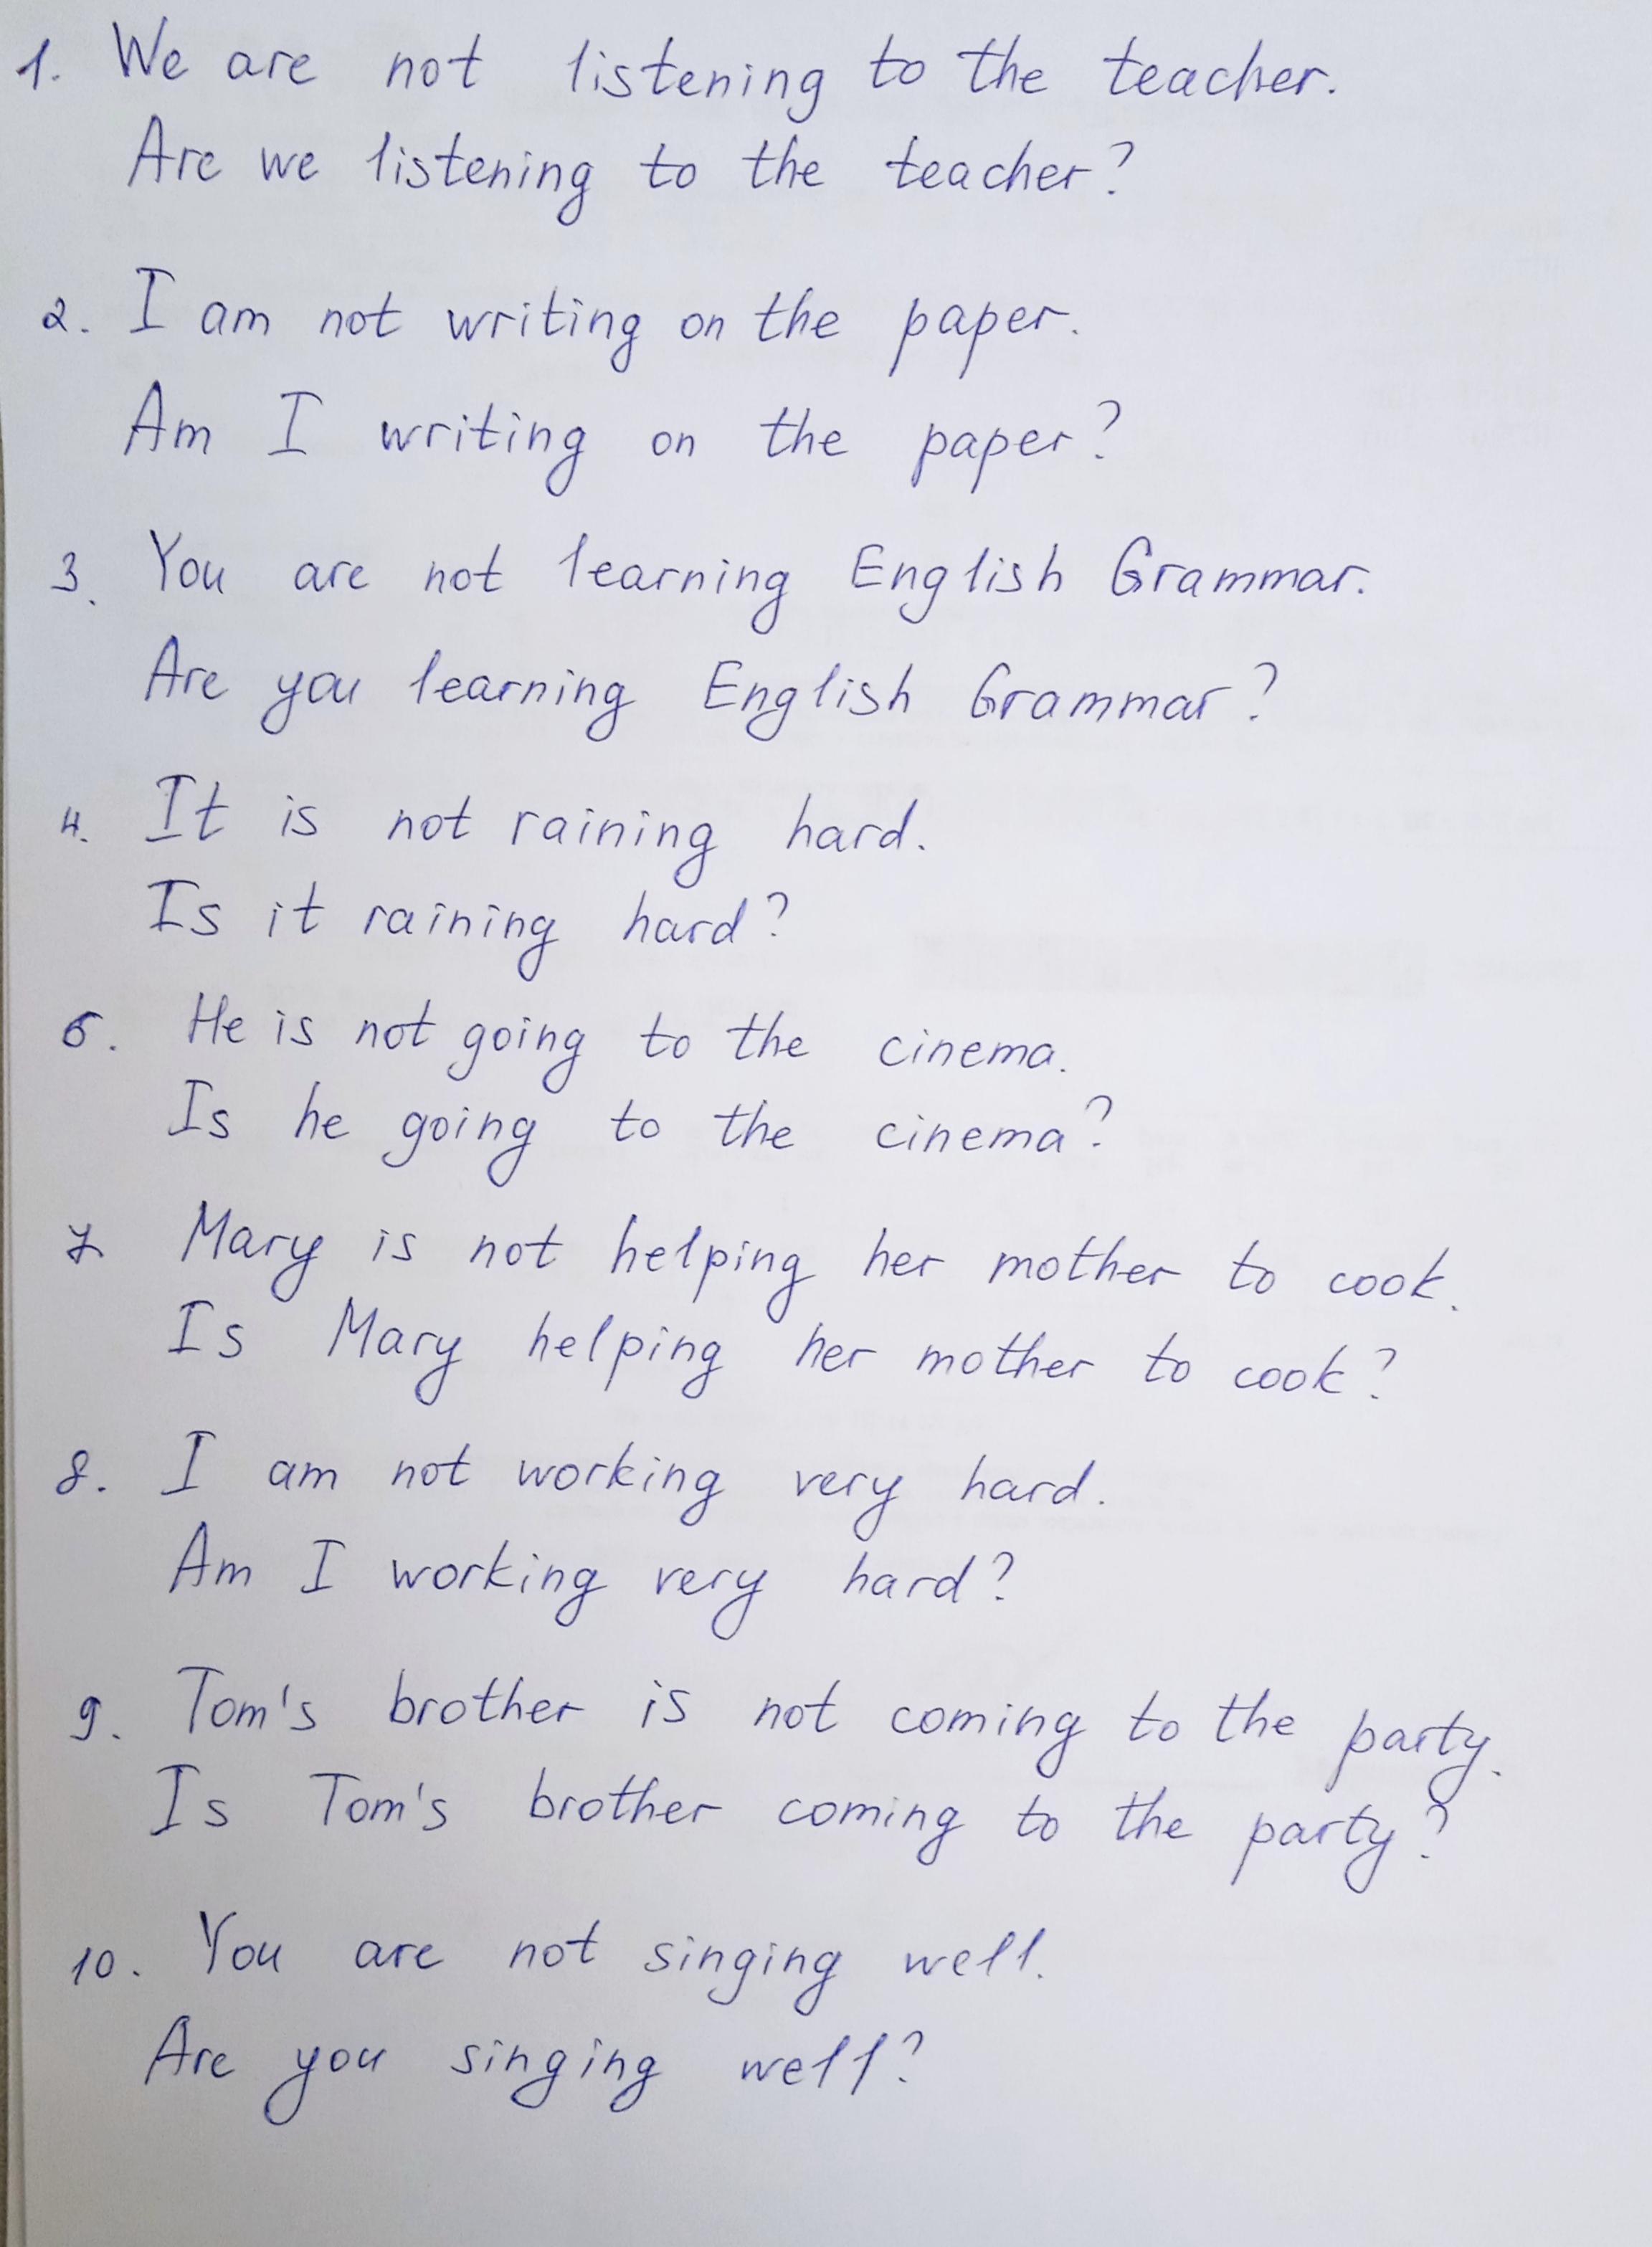 1. We are not listening to the teacher.
Are we listening to the teacher?
2. I am not writing on the paper.
Am I writing on the paper?
3. You are not learning English Grammar.
Are you learning English Grammar?
4. It is not raining hard.
Is it raining hard?
6. He is not going to the cinema.
Is he going to the cinema?
7. Mary is not helping her mother to cook.
Is Mary helping her mother to cook?
8. I am not working very hard.
Am I working very hard?
9. Tom's brother is not coming to the party.
Is Tom's brother coming to the party?
10. You are not singing well.
Are you singing well?